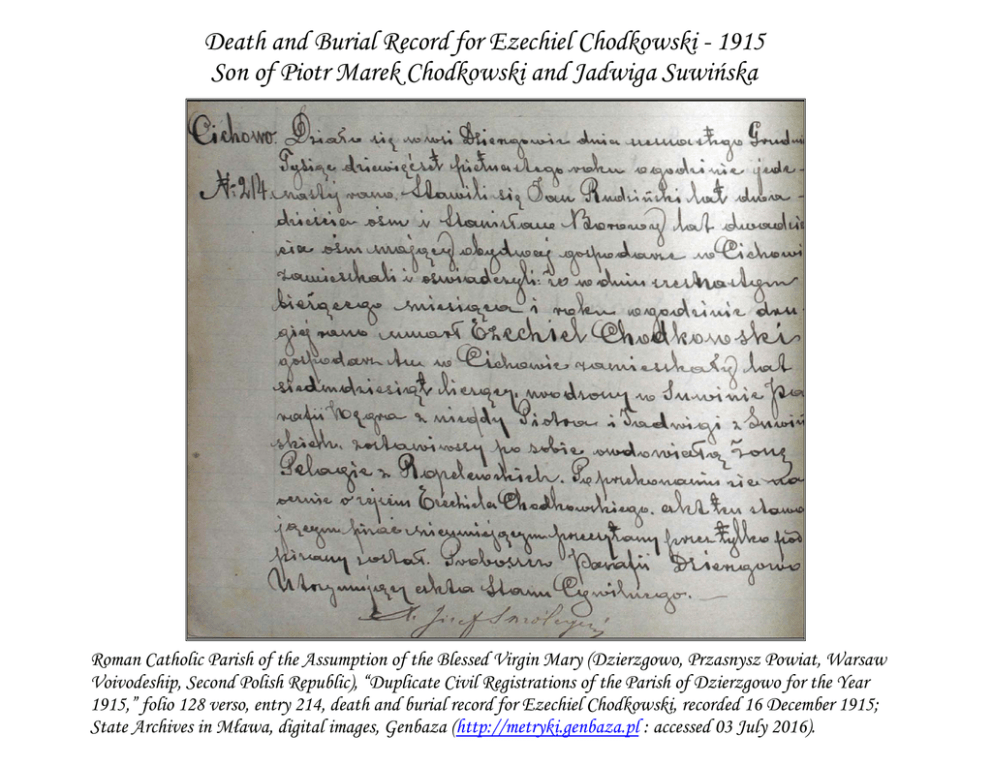 Death and Burial Record for Ezechiel Chodkowski - 1915
Son of Piotr Marek Chodkowski and Jadwiga Suwińska
Cichowo. Działo się w wsi Dziergowie dnia Grudni
Tysiąc dziewięćset piętnastego roku o godzinie jede-
№ 214. nastej rano, Stawili się Jan Rudziński lat dwa-
dzieścia ośm i Stanisław Borowy lat dwadzie
ścia ośm mający obydwaj gospodarze w Cichowi
zamieszkali i oświadczyli: że w dniu
bieżącego miesiąca i roku o godzinie dru-
giej rano umarł Ezechiel Chodkowski
gospodarz tu w Cichowie zamieszkały lat
siedmdziesiąt liczący, urodzony w Suwinie pa
rafii Węgra z niegdy Piotra i Jadwigi z Suwiń
skich, zostawiwszy po sobie owdowiałą żonę
Pelagię z Ropelewskich. Po przekonaniu się na
ocznie o zejściu Ezechiela Chodkowskiego, akt ten stawa
jącym pisać nieumiejącym przeczytany przez tylko pod
pisany został. Proboszcz Parafii Dziergowo
Utrzymujący akta Stanu Cywilnego.
X. Józef
Roman Catholic Parish of the Assumption of the Blessed Virgin Mary (Dzierzgowo, Przasnysz Powiat, Warsaw
Voivodeship, Second Polish Republic), “Duplicate Civil Registrations of the Parish of Dzierzgowo for the Year
1915,” folio 128 verso, entry 214, death and burial record for Ezechiel Chodkowski, recorded 16 December 1915;
State Archives in Mława, digital images, Genbaza (http://metryki.genbaza.pl : accessed 03 July 2016).